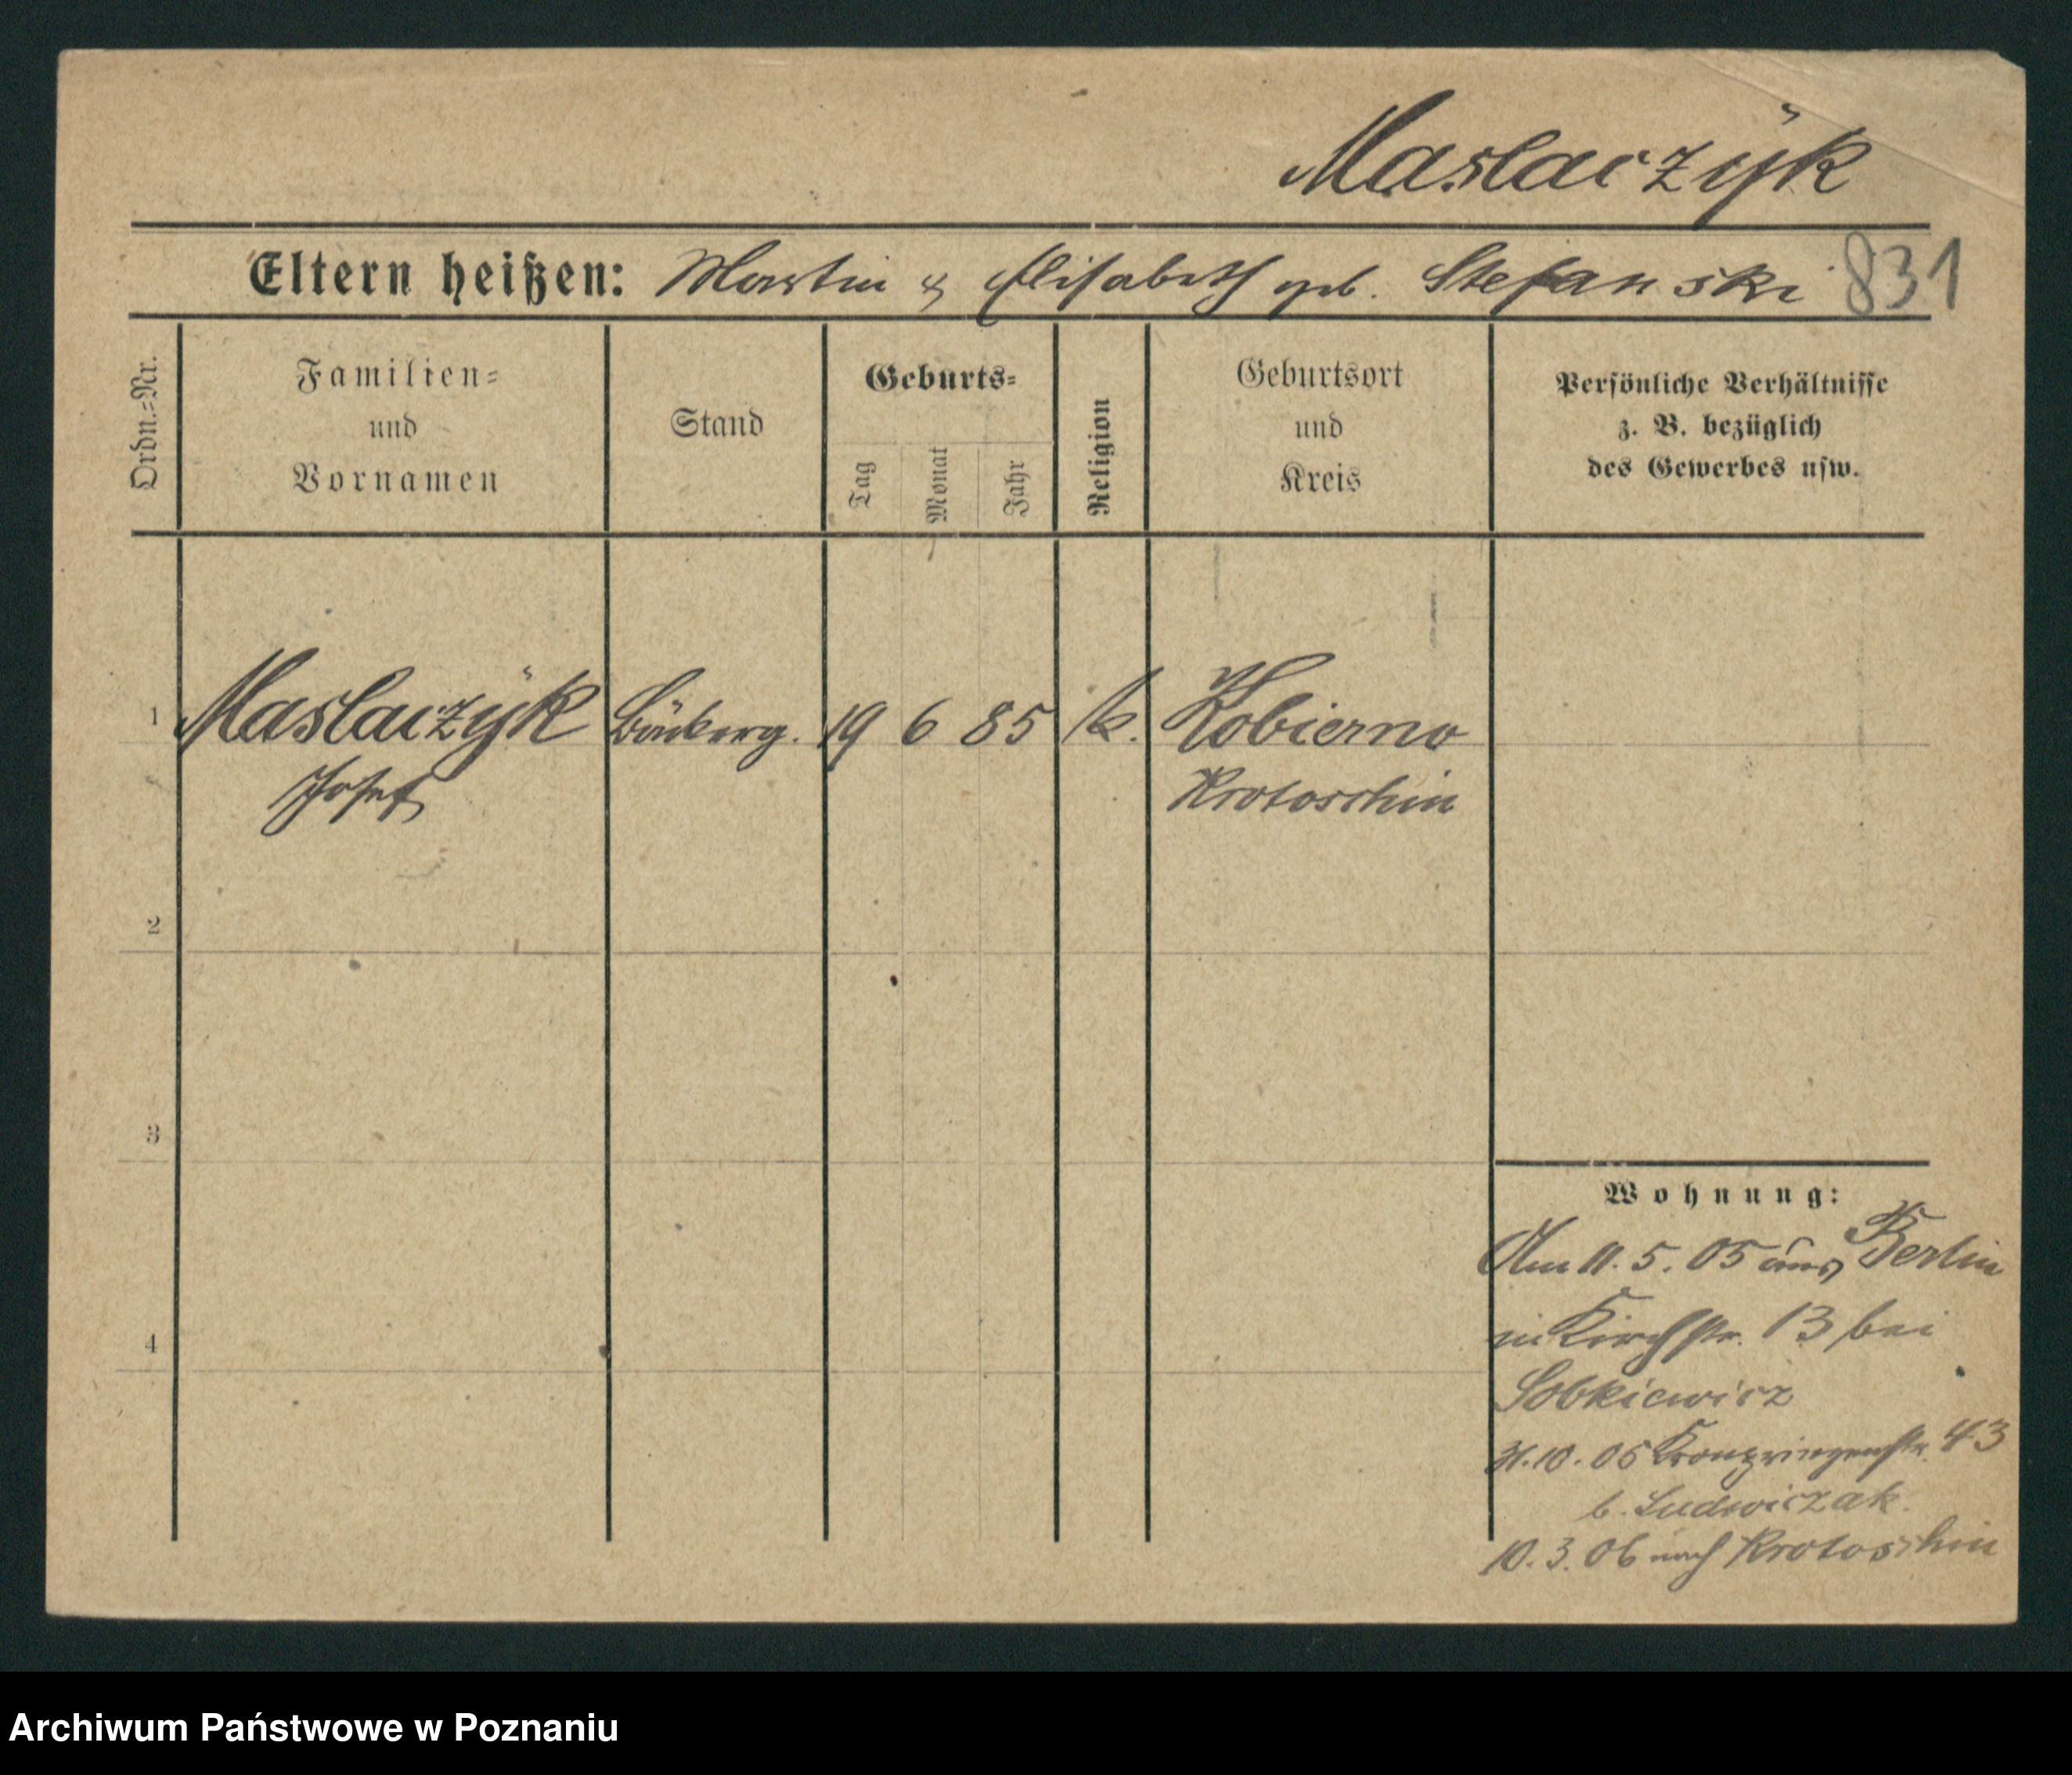 Maslaczÿk
Eltern heißen: Martin & Elisabeth geb. Stefanski 831
Ordn.-Nr.
Familien- und Vornamen
Stand
Geburts-
Tag Monat Jahr
Religion
Geburtsort und Kreis
Persönliche Verhältnisse
z. B. bezüglich
des Gewerbes usw.
1 Maslaczÿk 19 6 85 k. Kobierno
Josef Krotoschin
2
3
4
Wohnung:
Am 11. 5. 05 aus Berlin
in Kirchstr. 13 bei
Sobkiewicz
31. 10. 05 Kronprinzenstr. 43
b. Ludwiczak.
10. 3. 06 nach Krotoschin
Archiwum Państwowe w Poznaniu